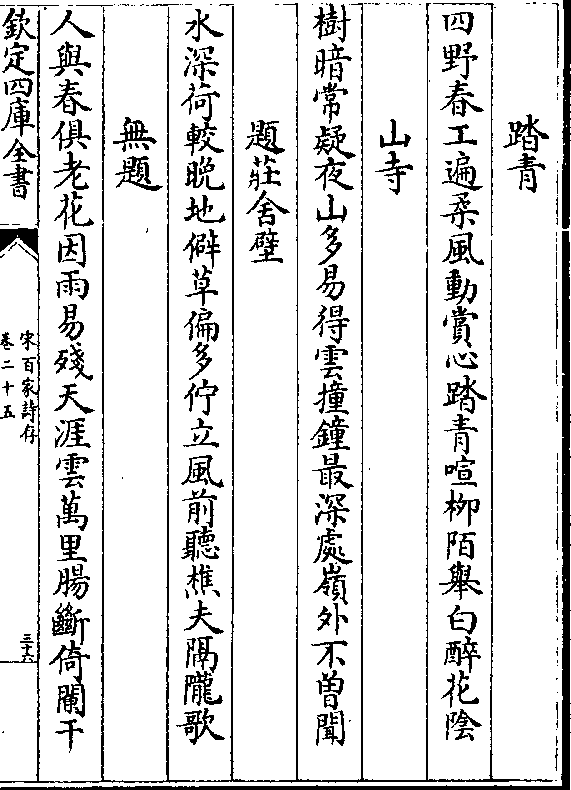 踏青
四野春工遍柔風動賞心踏青喧柳陌舉白醉花陰
山寺
樹暗常疑夜山多易得雲撞鐘最深處嶺外不曽聞
題莊舍壁
水深荷較晚地僻草偏多佇立風前聽樵夫隔隴歌
無題
人與春俱老花因雨易殘天涯雲萬里腸斷倚闌干
欽定四庫全書
宋百家詩存
卷二十五
三十六